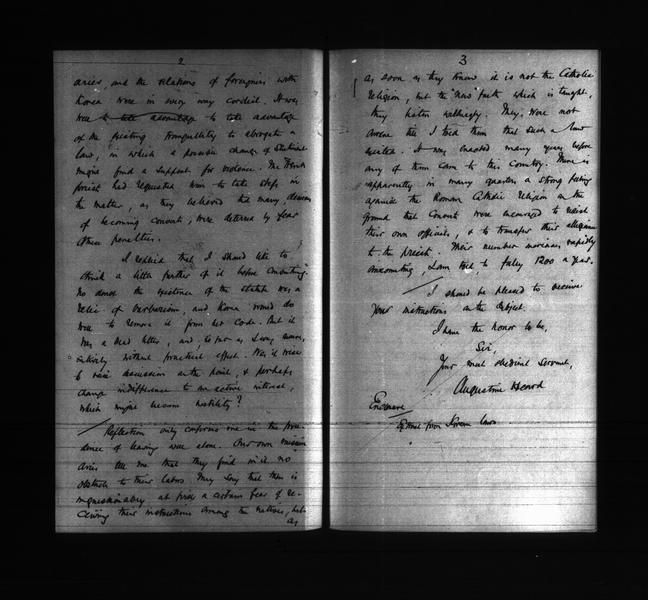 2
aries, and the relations of foreigners with
Korea were in every way cordial. It was
well to take advantage to take advantage
of the existing tranquillity to abrogate a
law, in which a possible change of Statecraft
might find a support for violence. The French
priest had requested him to take steps in
the matter, as they believed that many, desirous
of becoming converts, were deterred by fear
of these penalties.
I replied that I should like to
think a little further of it before consenting.
No doubt the existence of the statute was a
relic of barbarism, and Korea would do
well to remove it from her code. But it
was a dead letter, and, so far as I was aware,
entirely without practical effect. Was it wise
to raise discussion on the point, & perhaps
change indifference to an active interest,
which might become hostility?
Reflection only confirms me in the pru-
dence of leaving well alone. Our own mission-
aries tell me that they find in it no
obstacle to their labors. They say that there is
unquestionably at first a certain fear of re-
ceiving their instructions among the natives, but
as
3
as soon as they know it is not the Catholic
religion, but the "new" faith which is taught,
they listen willingly. They were not
aware till I told them that such a law
existed. It was enacted many years before
any of them came to this Country. There is
apparently in many quarters a strong feeling
against the Roman Catholic religion on the
ground that converts were encouraged to resist
their own officials, & to transfer their allegiance
to the priest. Their number increases rapidly
amounting, I am told, to fully 1200 a year.
I should be pleased to receive
Your instructions on the subject.
I have the honor to be,
Sir,
Your most obedient Servant,
Augustine Heard
Enclosure
Extract from Korean laws